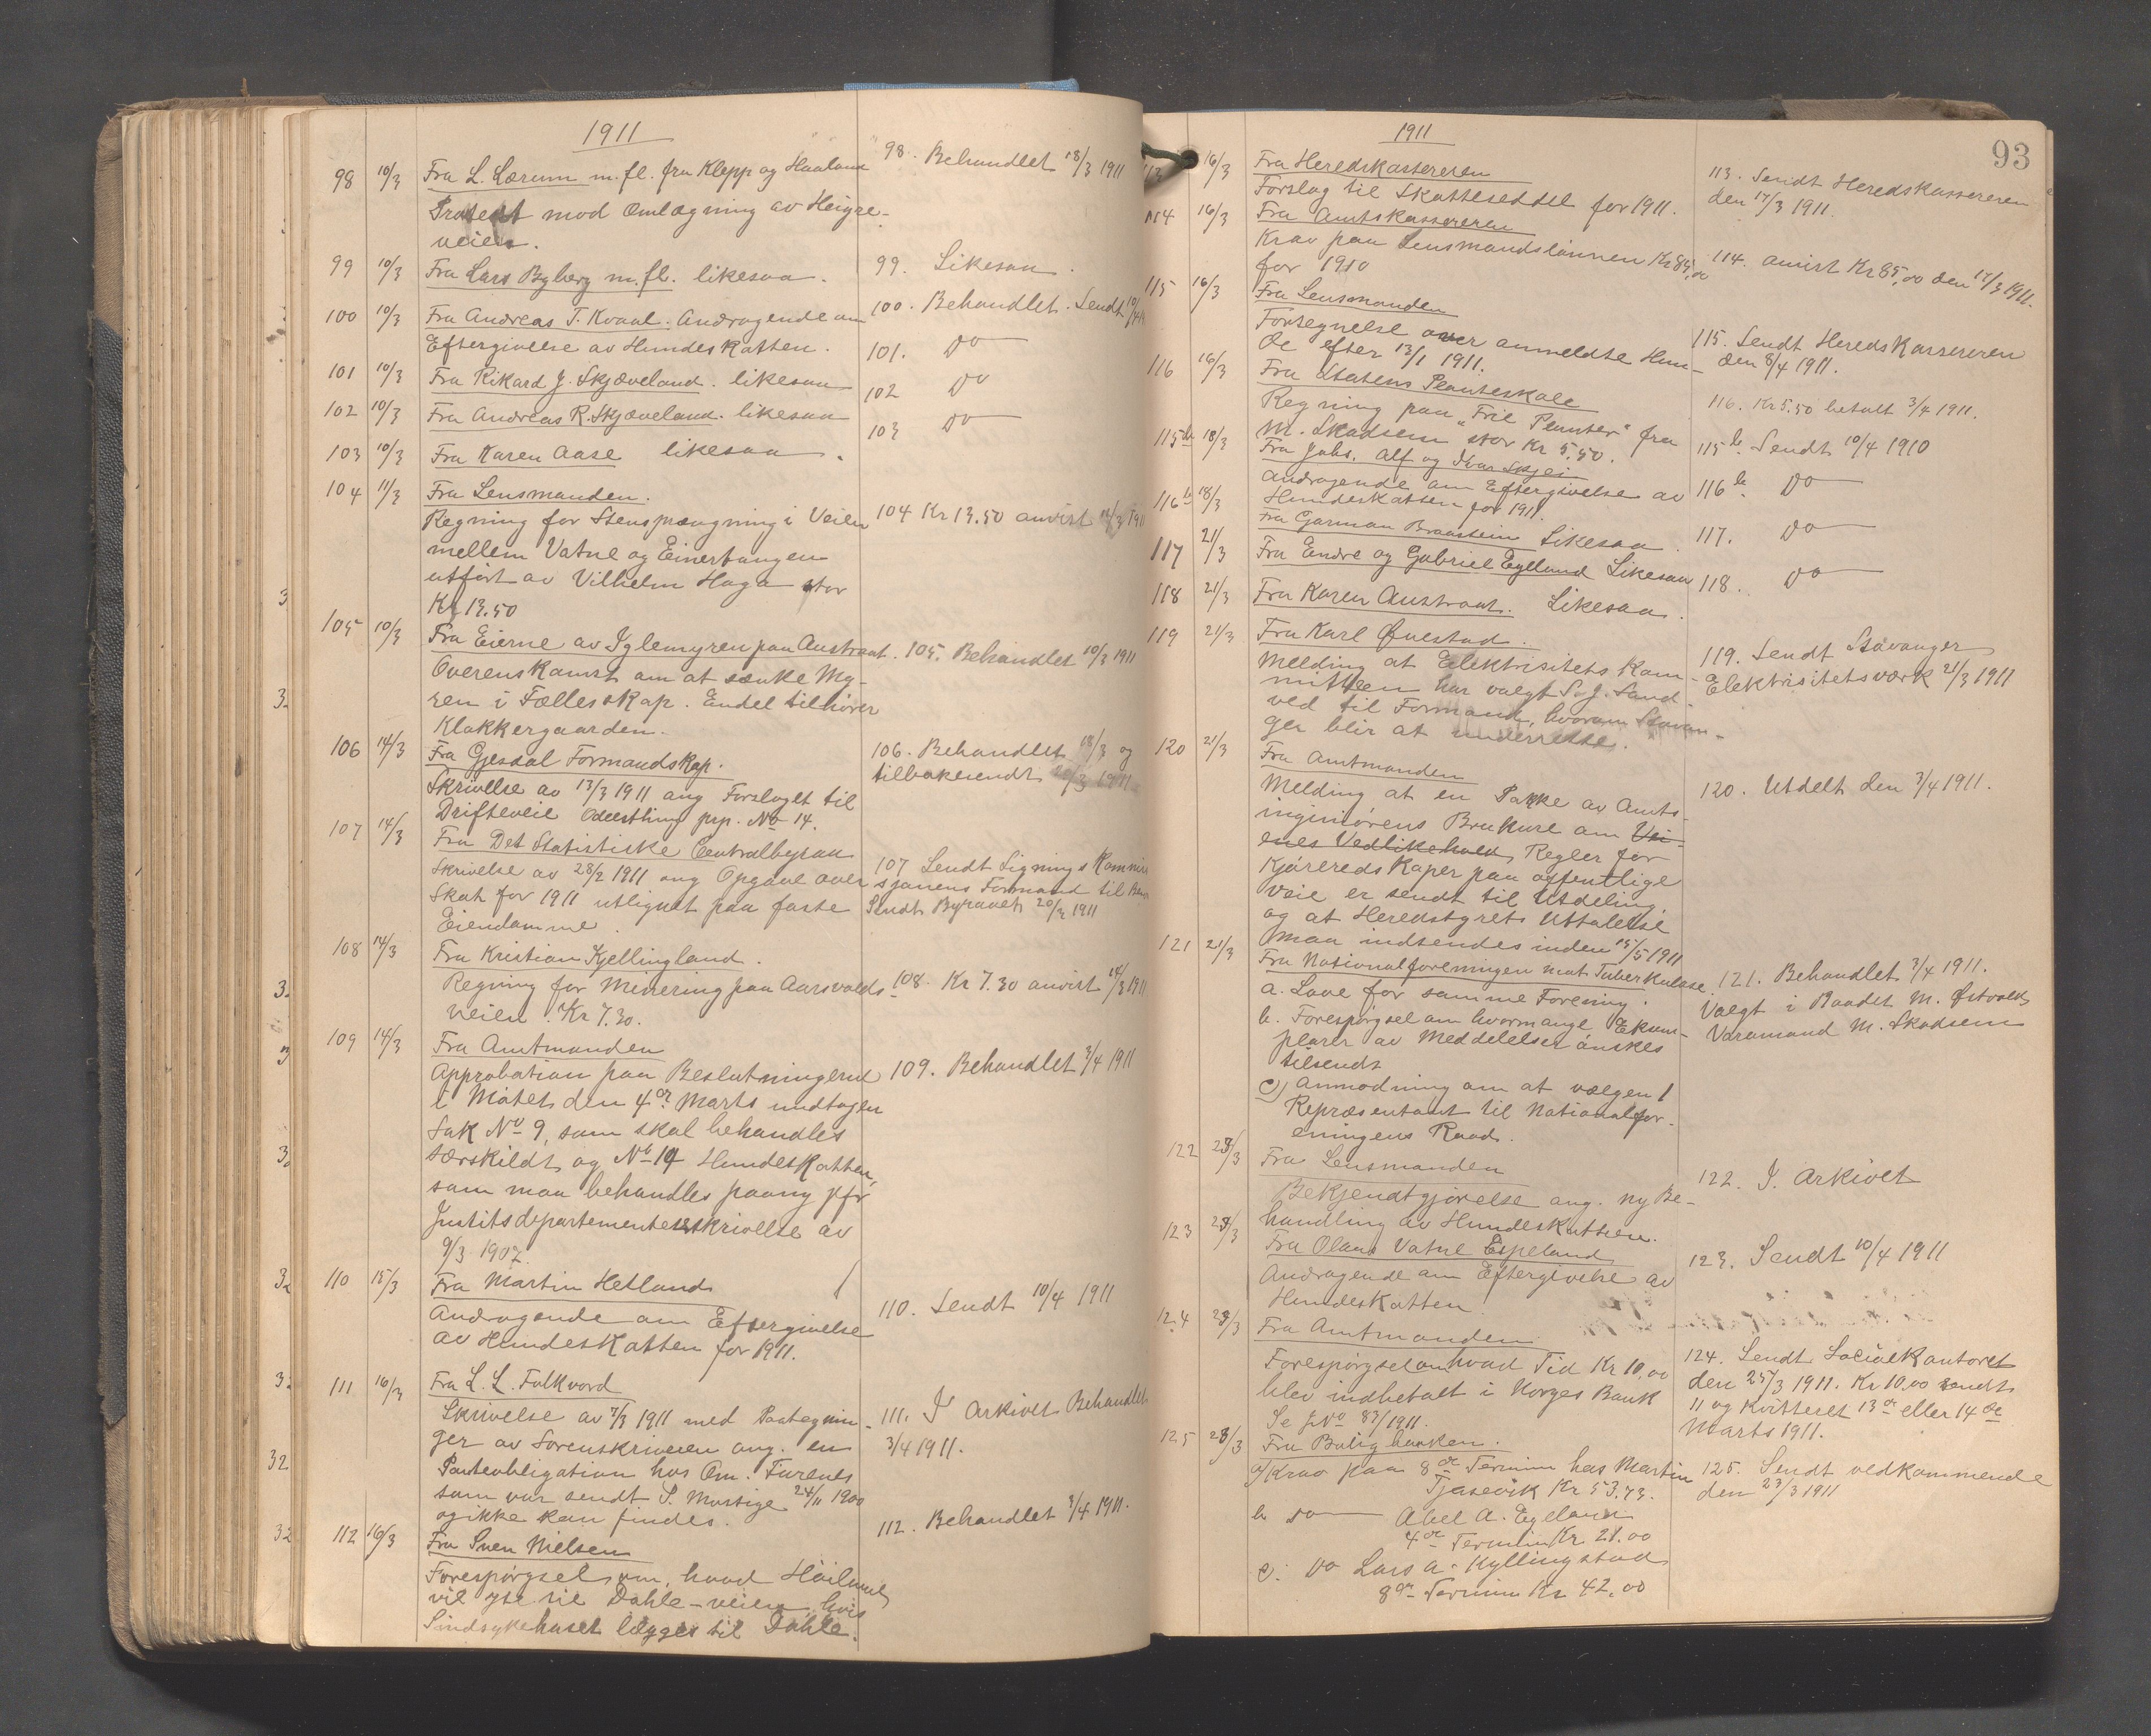 1911
98 10/3 Fra L. Lærum m. fl. fra Klepp og Haaland 98. Behandlet 18/3 1911
Protest mod Omlægning av Heigre-
veien.
99 10/3 Fra Lars Byberg m. fl. likesaa. 99. Likesaa.
100 10/3 Fra Andreas T. Kvaal. Andragende om 100. Behandlet. Sendt 10/4
Eftergivelse av Hundeskatten.
101 10/3 Fra Rikard J. Skjæveland. likesaa 101. Do
102 10/3 Fra Andreas R. Skjæveland. likesaa 102 Do
103 10/3 Fra Karen Aase likesaa. 103 Do
104 11/3 Fra Lensmanden.
Regning for Stensprængning i Veien 104 Kr 13.50 anvist 1911
mellem Vatne og Einertangen
utført av Vilhelm Haga stor
Kr 13.50
105 10/3 Fra Eierne av Iglemyren paa Austraat. 105. Behandlet 10/3 1911
Overenskomst om at sænke My-
ren i Fællesskap. Endel tilhører
Klakkergaarden.
106 14/3 Fra Gjesdal Formandskap. 106. Behandlet 18/3 og
Skrivelse av 13/3 1911 ang Forslaget til tilbakesendt 1911
Drifteveie Odelsthing prp. No 14.
107 14/3 Fra Det Statistiske Centralbyraa
Skrivelse av 28/2 1911 ang Opgave over 107 Sendt Lignings Kommis
Skat for 1911 utlignet paa faste sjonens Formand til
Eiendomme. Sendt Byraaet 20/3 1911
108 14/3 Fra Kristian Kjellingland.
Regning for Minering paa Aarsvolds- 108. Kr 7.30 anvist 14/3 1911
veien. Kr 7.30.
109 14/3 Fra Amtmanden
Approbation paa Beslutningerne 109. Behandlet 3/4 1911
i Møtet den 4de Marts undtagen
Sak No 9, som skal behandles
særskildt og No 14 Hundeskatten,
som maa behandles paany jfr
Justitsdepartementets skrivelse av
9/3 1907.
110 15/3 Fra Martin Hetland
Andragende om Eftergivelse 110. Sendt 10/4 1911
av Hundeskatten for 1911.
111 16/3 Fra L. L. Folkvord
Skrivelse av 7/3 1911 med Paategnin- 111. I Arkivet Behandlet
ger av Sorenskriveren ang. en 3/4 1911.
Panteobligation hos Om. Furenes
som var sendt P. Mossige 24/11 1900
og ikke kan findes.
112 16/3 Fra Sven Nielsen 112. Behandlet 3/4 1911.
Forespørgsel om, hvad Høiland
vil yte til Dahle-veien hvis
Sindsykehuset lægges til Dahle.
1911
93
113 16/3 Fra Heredskassereren 113. Sendt Heredskassereren
Forslag til Skatteseddel for 1911. den 17/3 1911.
114 16/3 Fra Amtskassereren
Krav paa Lensmandslønnen Kr 85,00 114. Anvist Kr 85,00 den 17/3 1911.
for 1910
115 16/3 Fra Lensmanden
Fortegnelse over anmeldte Hun- 115. Sendt Heredskassereren
de efter 13/1 1911. den 8/4 1911.
116 16/3 Fra Statens Planteskole
Regning paa "Frie Planter" fra 116. Kr 5.50 betalt 3/4 1911.
M. Skadsem stor Kr 5.50.
115b 18/3 Fra Johs, Alf og Ivar Skjei 115b. Sendt 10/4 1910
Andragende om Eftergivelse av
Hundeskatten for 1911.
116b 18/3 Fra Garman Braastein Likesaa. 116b. Do
117 21/3 Fra Endre og Gabriel Egeland Likesaa 117. Do
118 21/3 Fra Karen Austraat. Likesaa. 118. Do
119 21/3 Fra Karl Øvestad.
Melding at Elektrisitets Kom- 119. Sendt Stavanger
mitteen har valgt S. J. Sand- Elektrisitetsværk 21/3 1911
ved til Formand, hvorom Stavan-
ger blir at underrette.
120 21/3 Fra Amtmanden
Melding at en Pakke av Amts- 120. Utdelt den 3/4 1911.
ingeniørens Brukure om Vei-
enes Vedlikehold, Regler for
Kjøreredskaper paa offentlige
Veie er sendt til Utdeling,
og at Heredstyrets Uttalelse
maa indsendes inden 15/5 1911
121 21/3 Fra Nationalforeningen mot Tuberkulose. 121. Behandlet 3/4 1911.
a. Love for samme Forening. Valgt i Raadet M. Østvold
b. Forespørgsel om hvormange Eksem- Varamand M. Skadsem
plarer av Meddelelser ønskes
tilsendt
c) Anmodning om at vælgen 1
Repræsentant til Nationalfor-
eningens Raad.
122 23/3 Fra Lensmanden
Bekjendtgjørelse ang. ny Be- 122. I. Arkivet
handling av Hundeskatten.
123 23/3 Fra Olaus Vatne Espeland
Andragende om Eftergivelse av 123. Sendt 10/4 1911
Hundeskatten.
124 23/3 Fra Amtmanden
Forespørgsel om hvad Tid Kr 10,00 124. Sendt Socialkontoret
blev indbetalt i Norges Bank den 25/3 1911. Kr 10,00 sendt
Se JNo 83/1911. 11 og Kvitteret 13de eller 14de
Marts 1911.
125 23/3 Fra Boligbanken.
a) Krav paa 8de Termin hos Martin 125. Sendt vedkommende
Tjaasevik Kr 53.73. den 23/3 1911
b Do Abel A. Egeland
4de Termin Kr 21.00
c. Do Lars A. Kyllingstad
8de Termin Kr 42.00